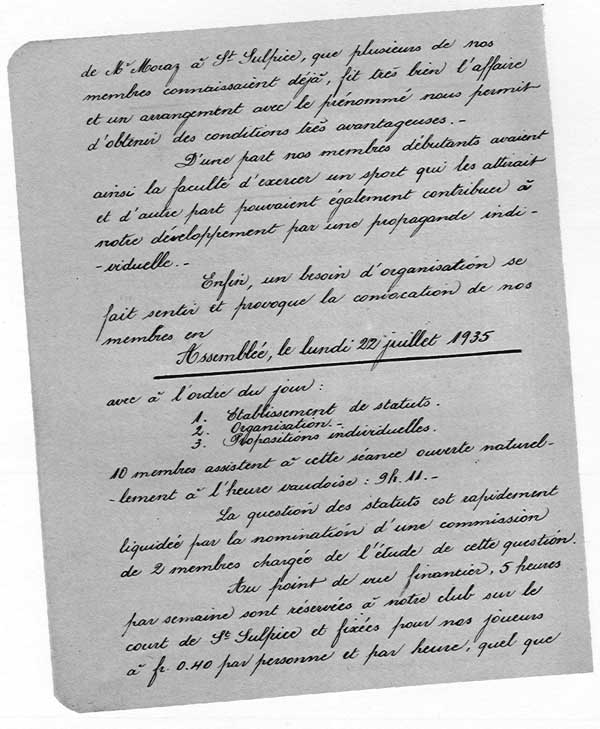 de Mr Moraz à St Sulpice, que plusieurs de nos
membres connaissaient déjà, fit très bien l'affaire
et un arrangement avec le prénommé nous permit
d'obtenir des conditions très avantageuses.-
D'une part nos membres débutants avaient
ainsi la faculté d'exercer un sport qui les attirait
et d'autre part pouvaient également contribuer à
notre développement par une propagande indi-
-viduelle.-
Enfin, un besoin d'organisation se
fait sentir et provoque la convocation de nos
membres en
Assemblée, le lundi 22 juillet 1935
avec à l'ordre du jour :
1. Etablissement de statuts.
2. Organisation.-
3. Propositions individuelles.
10 membres assistent à cette séance ouverte naturel-
-lement à l'heure vaudoise : 9h.11.-
La question des statuts est rapidement
liquidée par la nomination d'une commission
de 2 membres chargée de l'étude de cette question.
Au point de vue financier, 5 heures
par semaine sont réservées à notre club sur le
court de St Sulpice et fixées pour nos joueurs
à fr. 0.40 par personne et par heure, quel que